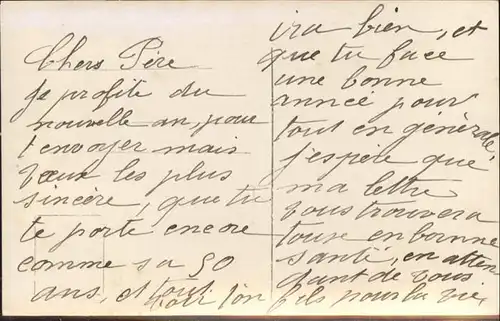 Chers Père
je profite du
nouvelle an, pour
t envoyer mais
vœux les plus
sincère, que tu
te porte encore
comme sa 50
ans, et tout
ira bien, et
que tu face
une bonne
année pour
tout en générale,
j'espère que
ma lettre
vous trouvera
tous en bonne
santé, en atten
dant de vous
ton fils pour la vie,